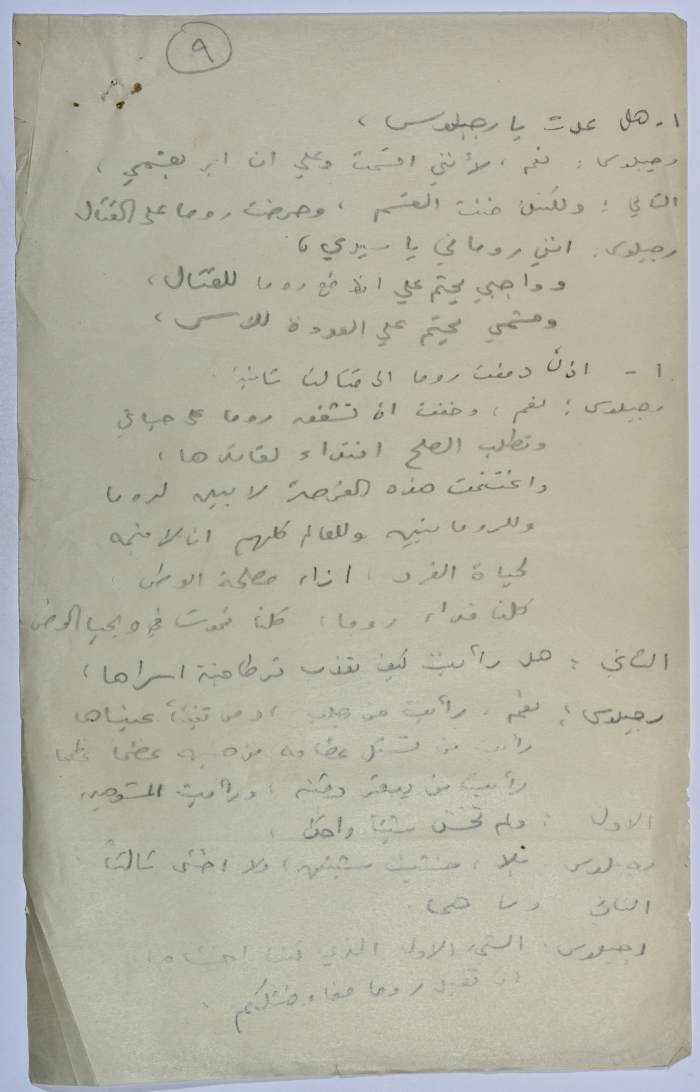 ٩
١ - هل عدت يا رجيلوس ،
رجيلوس : نعم ، لأنني اقسمت وعلي ان ابر بقسمي ،
الثاني : ولكنك خنت القسم ، وحرضت روما على القتال
رجيلوس : انني روماني يا سيدي ،
وواجبي يحتم علي ان ادفع روما للقتال ،
وقسمي يحتم علي العودة للاسر ،
١ - اذن دفعت روما الى قتالنا ثانية
رجيلوس : نعم ، وخفت ان تشفق روما على حياتي
وتطلب الصلح افتداء لقائدها ،
واغتنمت هذه الفرصة لابين لروما
وللرومانيين وللعالم كلهم ان لا قيمة
لحياة الفرد ، ازاء مصلحة الوطن
كلنا فداء روما ، كلنا نموت ويحيا الوطن
الثاني : هل رأيت كيف تعذب قرطاجنة اسراها ،
رجيلوس : نعم ، رأيت من صلب ، ومن تفقأ عيناها
رأيت من تستل عظامه من جسمه عظما عظما
رأيت من ، ورأيت المشوهين
الاول : ولم تخش شيئا واحدا ،
رجيلوس بلا ، خشيت شيئين ، ولا اخشى ثالثا
الثاني وما هما
رجيلوس : الشيء الاول الذي كنت اخشاه
ان تقبل روما مفاوضتكم .